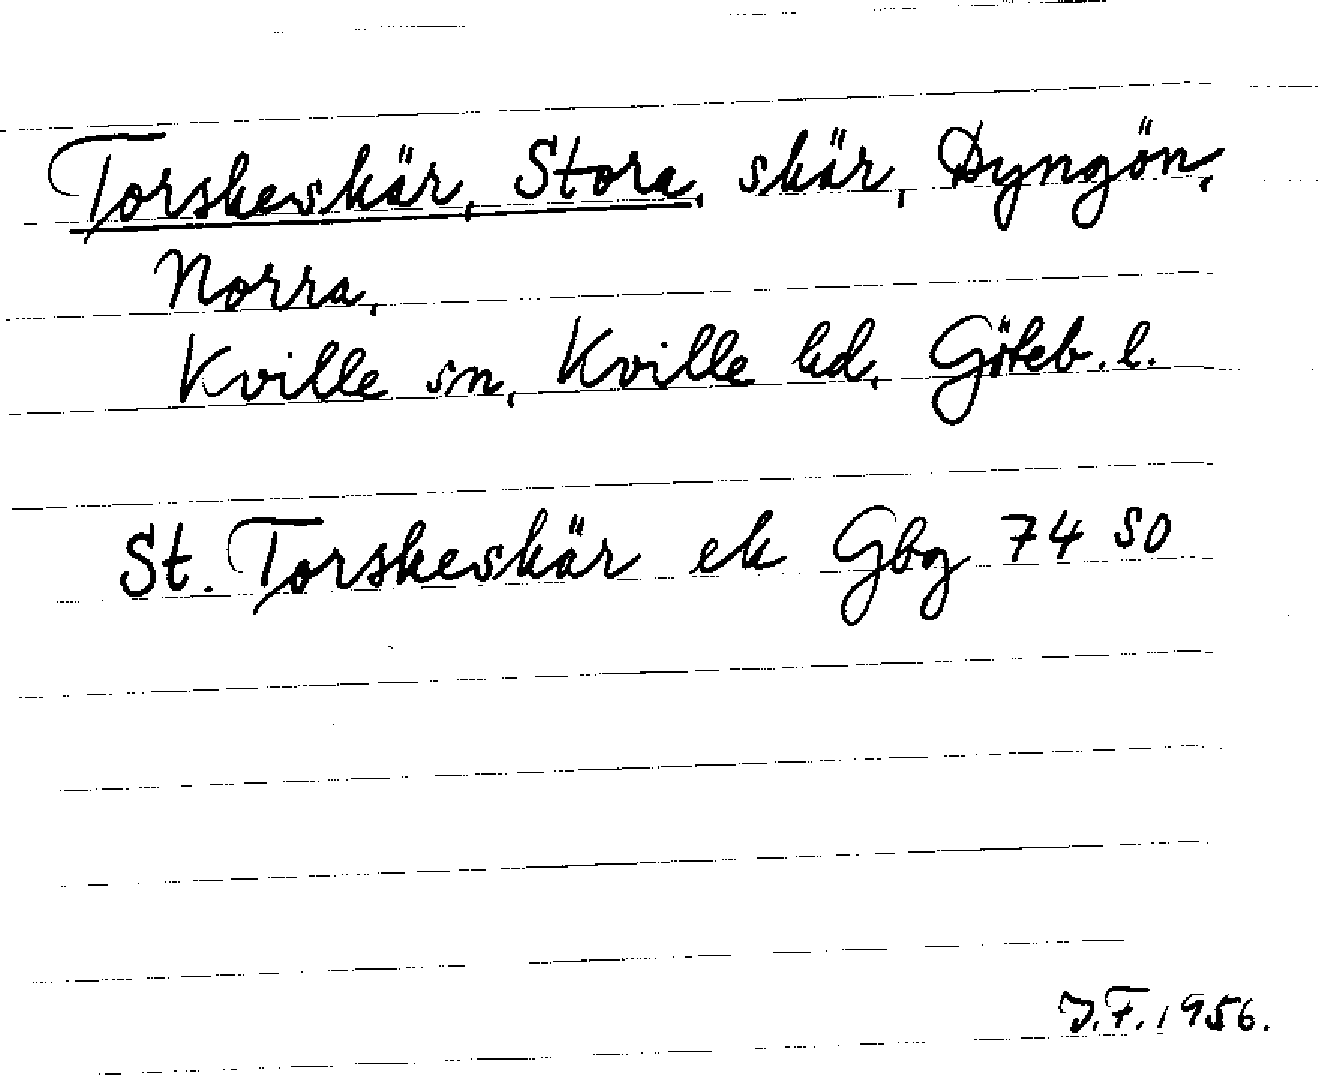 Torskeskär, Stora, skär, Dyngön,
Norra,
Kville sn, Kville hd, Göteb. l.
St. Torskeskär ek Gbg 74 SO
J.F. 1956.